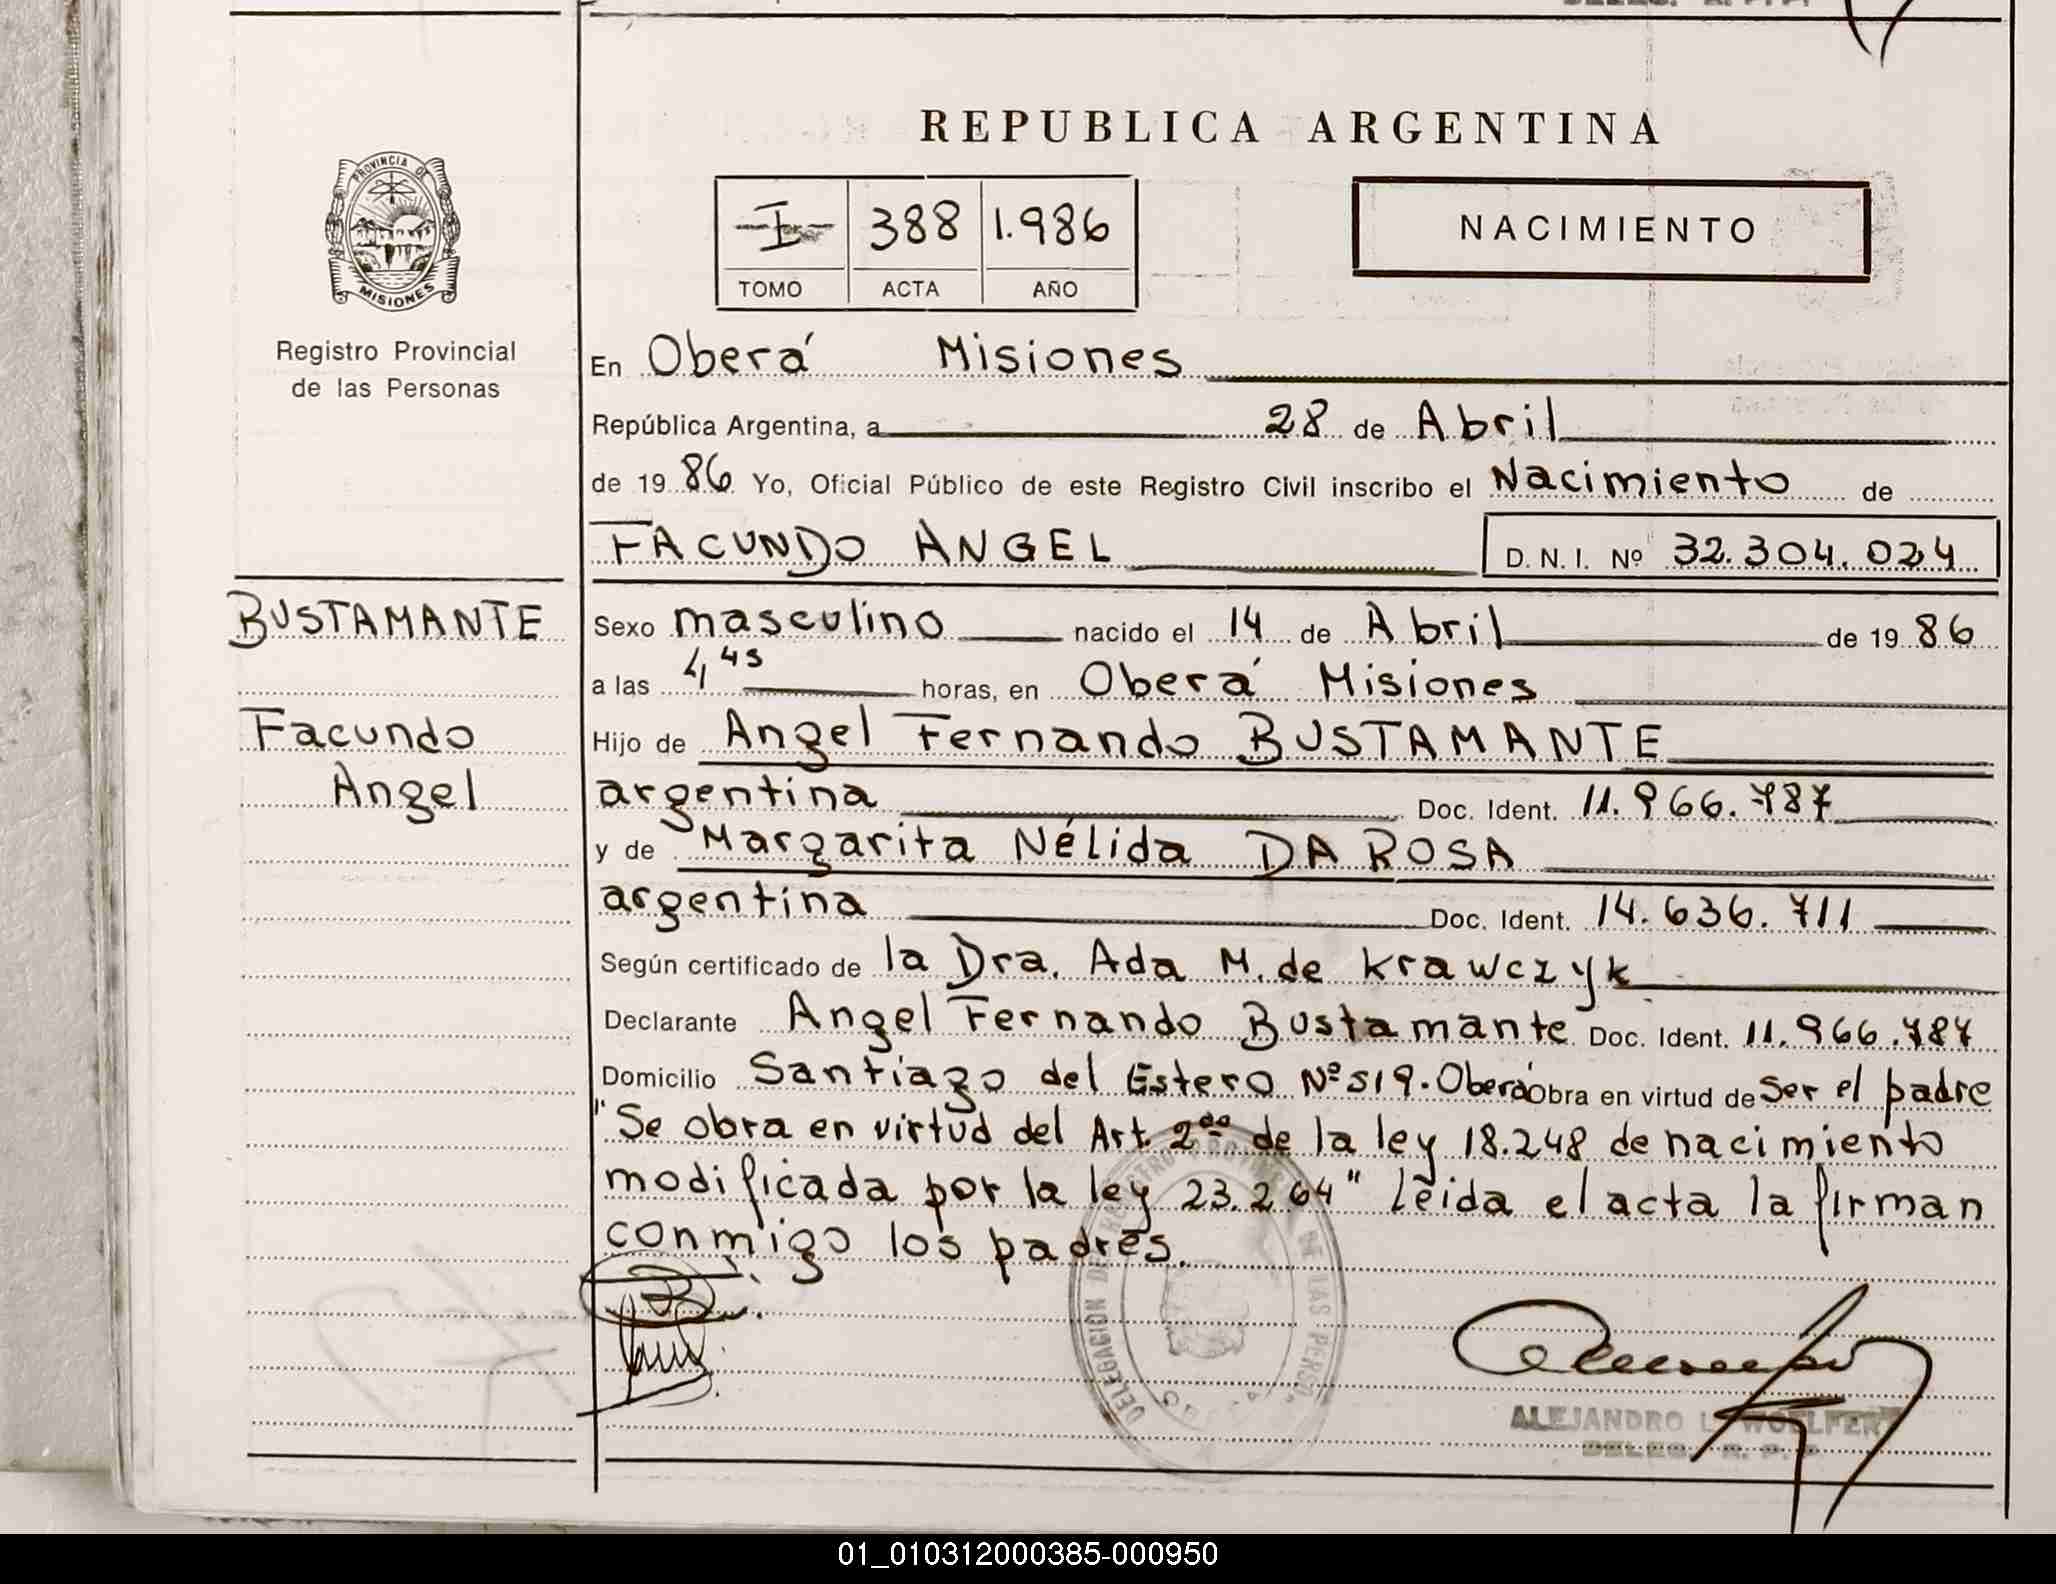 REPUBLICA ARGENTINA
PROVINCIA DE
MISIONES
Registro Provincial
de las Personas
I 388 1.986
TOMO ACTA AÑO
NACIMIENTO
En Oberá Misiones
República Argentina, a 28 de Abril
de 19 86 Yo, Oficial Público de este Registro Civil inscribo el Nacimiento de
FACUNDO ANGEL D. N. I. Nº 32.304.024
BUSTAMANTE
Facundo
Angel
Sexo masculino nacido el 14 de Abril de 19 86
a las 4,45 horas, en Oberá Misiones
Hijo de Angel Fernando BUSTAMANTE
argentina Doc. Ident. 11.966.787
y de Margarita Nélida DA ROSA
argentina Doc. Ident. 14.636.711
Según certificado de la Dra. Ada M. de Krawczyk
Declarante Angel Fernando Bustamante Doc. Ident. 11.966.787
Domicilio Santiago del Estero Nº 519. Oberá Obra en virtud de Ser el padre
"Se obra en virtud del Art. 2do de la ley 18.248 de nacimiento
modificada por la ley 23.264" Leida el acta la firman
conmigo los padres.
DELEGACION DEL REGISTRO PROVINCIAL DE LAS PERSO.
OBERA
ALEJANDRO L. WOELFERT
DELEG. R. P. P.
01_010312000385-000950